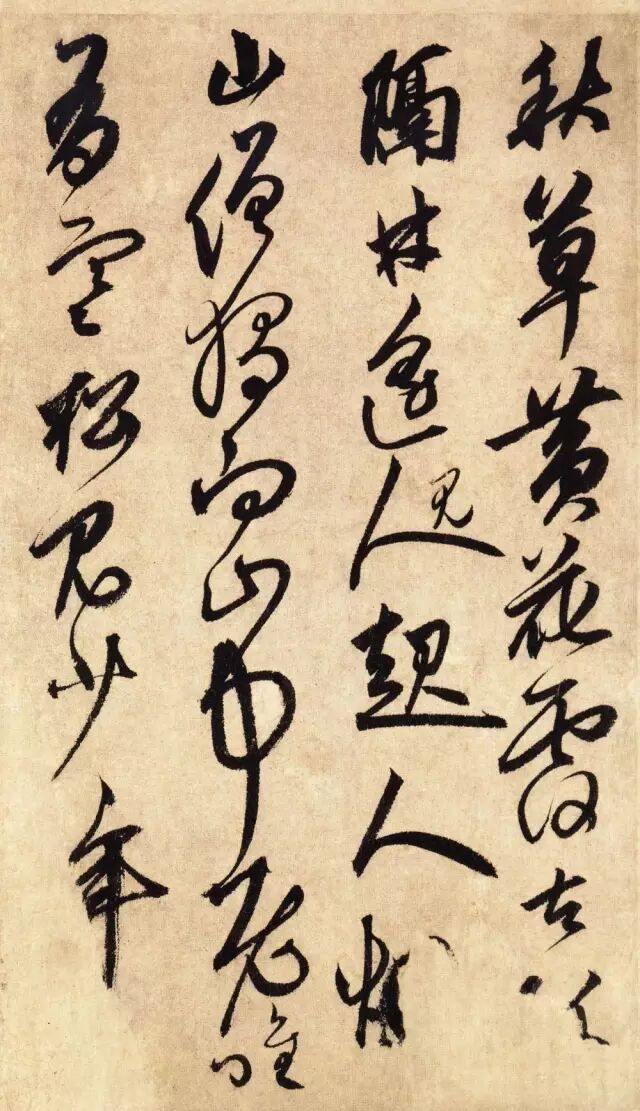 秋草黄花覆古
隔林遥人见起人烟
山僧独向山中老唯
有寒松见少年